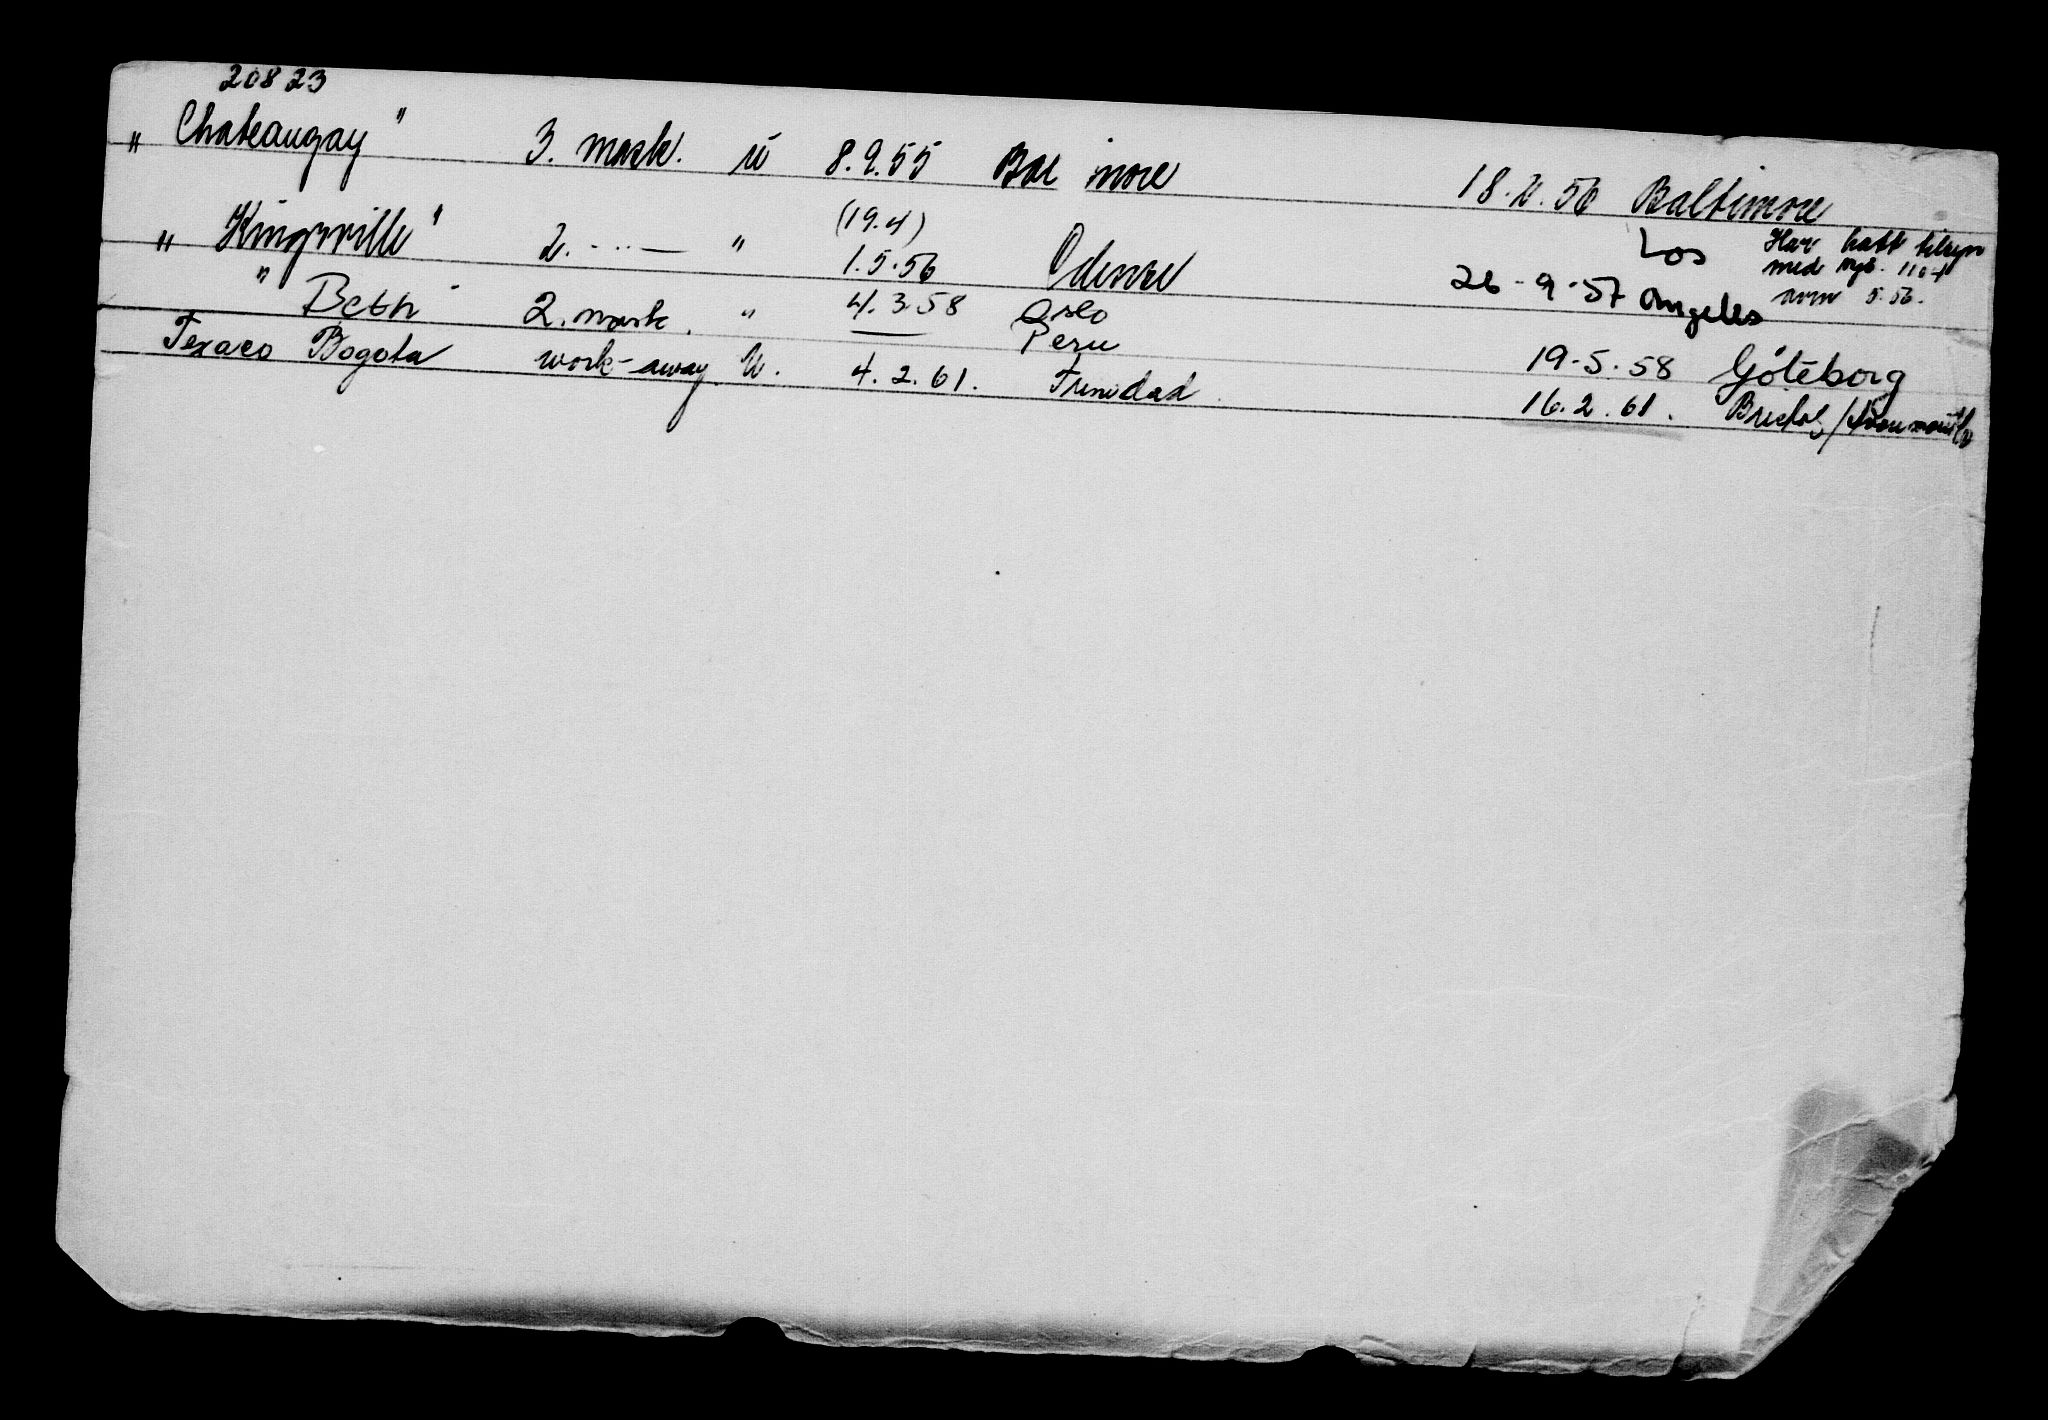 20823
„ Chateaugay" 3. mask. u 8.9.55 Bal more 18.2.56 Baltimore
„ Kingsville" 2. -··- — " (19.4) 1.5.56 Odense 26-9-57 Los Angeles Har hatt tilsyn med nyb. 1104 5.56.
" Beth" 2. mask. " 4.3.58 Oslo 19-5.58 Göteborg
Peru
Texaco Bogota work-away u. 4.2.61. Trinidad 16.2.61. Bristol/Avonmouth